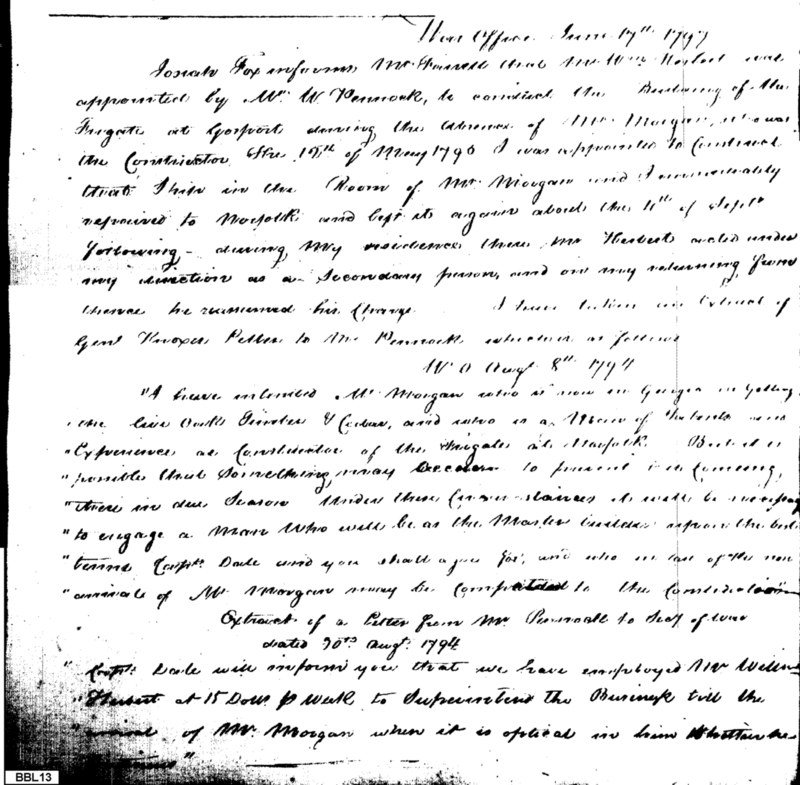 War Office June 17th 1797
Josiah Fox informs Mr Farrell that Mr Wm Herbert was
appointed by Mr. W. Pennock, to conduct the Building of the
Frigate at Gosport during the absence of Mr. Morgan, who was
the Constructor The 12th of May 1796 I was appointed to Construct
that Ship in the Room of Mr Morgan and I immediately
repaired to Norfolk and left it again about the 4th of Septr
following - during my residence there Mr Herbert acted under
my direction as a Secondary person, and on my returning from
thence he resumed his Charge. I have taken an Extract of
Genl Knoxes Letter to Mr Pennock which is as follows
W. O Augt 8th 1794
"I have intended Mr Morgan who is now in Georgia in getting
the live Oak Timber & Cedar, and who is a Man of Talents and
"Experience as Constructor of the Frigate at Norfolk. But it is
"possible that Something may occur to prevent him Coming,
"there in due Season Under these Circumstances it will be necessary
"to engage a Man Who will be as the Master builder upon the best
"terms Captn. Dale and you shall agree for, and who in case of the non
"arrival of Mr Morgan may be Competent to the Construction"
Extract of a Letter from Mr. Pennock to Secy of War
dated 30th Augt. 1794
"Captn. Dale will inform you that we have employed Mr Willm
"Herbert at 15 Dolls. p Week to Superintend the Business till the
"arrival of Mr. Morgan when it is optical in him Whether he
"
BBL13